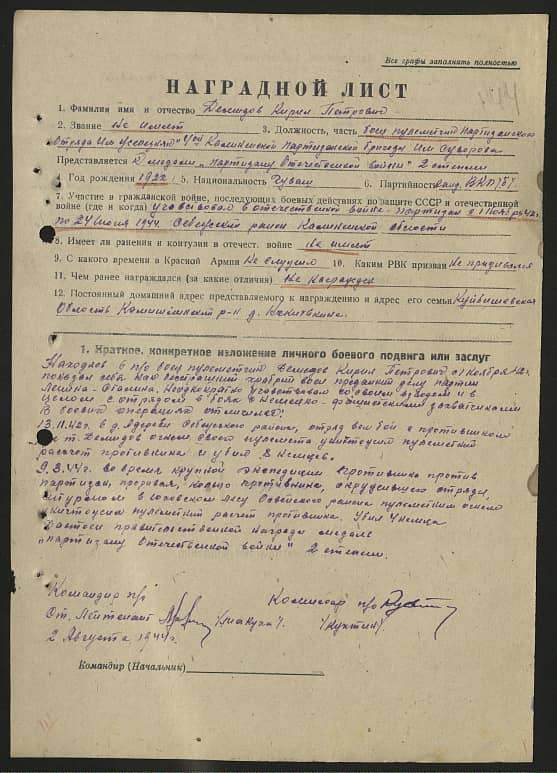 Все графы заполнять полностью
НАГРАДНОЙ ЛИСТ
1. Фамилия имя и отчество Демидов Кирил Петрович
2. Звание Не имеет 3. Должность, часть боец пулеметчик Партизанского
Отряда Им 4ой Калининской Партизанской бригады Им Суворова
Представляется К медали „партизану Отечественной войны" 2 степени
4. Год рождения 1922 5. Национальность Чуваш 6. Партийность канд. ВКП/б/
7. Участие в гражданской войне, последующих боевых действиях по защите СССР и отечественной
войне (где и когда) Участвовал в отечественной войне - партизан с 1 Ноября 42г.
по 24 Июля 1944. Себежский район Калининской области
8. Имеет ли ранения и контузии в отечест. войне Не имеет
9. С какого времени в Красной Армии Не служил 10. Каким РВК призван Не призывался
11. Чем ранее награждался (за какие отличия) Не награжден
12. Постоянный домашний адрес представляемого к награждению и адрес его семьи Куйбышевская
Область р-н д. Никиткино.
1. Краткое, конкретное изложение личного боевого подвига или заслуг
Находясь в п/о боец пулеметчик Демидов Кирил Петрович с 1 Ноября 42г.
показал себя как бесстрашный храбрый воин преданный делу партии
Ленина-Сталина. Неоднократно участвовал со своим взводом и в
целом с отрядом в боях с Немецко-фашистскими захватчиками
В боевых операциях отличился:
13.11.42г. в д. Себежского района, отряд вел бой с противником
т. Демидов огнем своего пулемета уничтожил пулеметный
расчет противника и убил 8 Немцев.
9.3.44г. во время крупной экспедиции противника против
партизан, прорывая кольцо противника, окружившего отряд,
в лесу района пулеметным огнем
уничтожил пулеметный расчет противника. Убил 4 немца
Достоин правительственной награды медаль
„партизану Отечественной войны" 2 степени.
Командир п/о Комиссар п/о
Ст. Лейтенант
2 Августа 1944г.
Командир (Начальник)